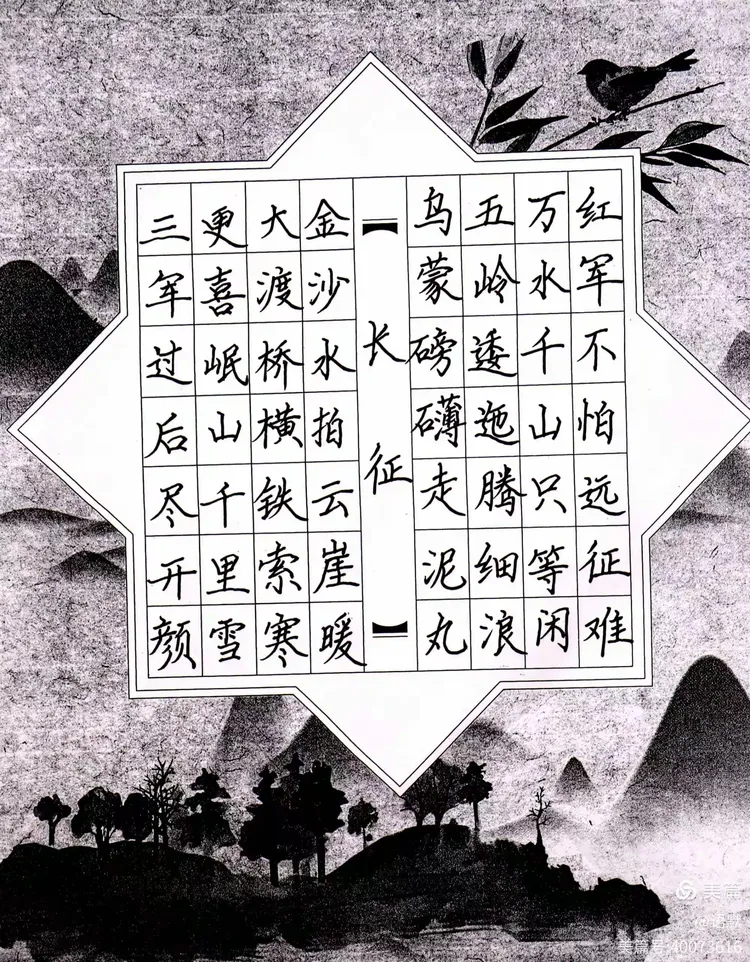 红军不怕远征难
万水千山只等闲
五岭逶迤腾细浪
乌蒙磅礴走泥丸
长征
金沙水拍云崖暖
大渡桥横铁索寒
更喜岷山千里雪
三军过后尽开颜
美篇
美篇号:40073616